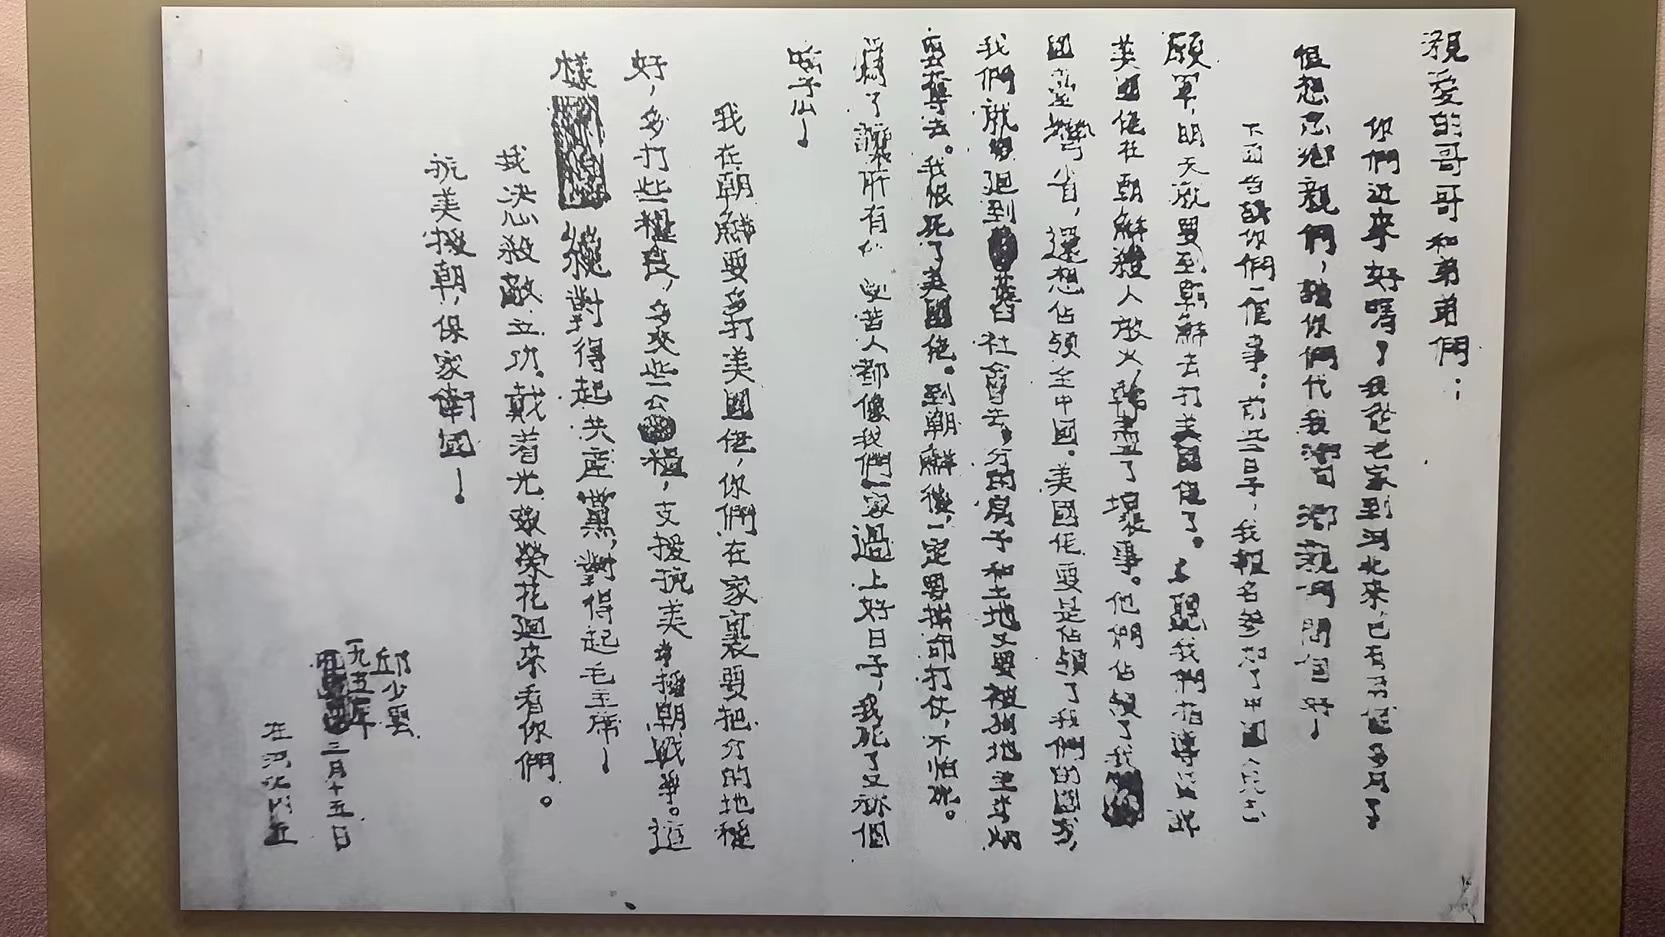 親爱的哥哥和弟弟們：
你們近來好嗎？我從老家到河北來，已有兩個多月了
很想念鄉親們，請你們代我向鄉親們問個好！
下面告訴你們一個事：前些日子，我報名參加了中國人民志
願軍，明天就要到朝鮮去打美國佬了。上級我們指導員說
美國佬在朝鮮殺人放火，幹盡了壞事。他們佔領了我
國臺灣省，還想佔領全中國。美國佬要是佔領了我們的國家，
我們就要迴到舊社會去，分的房子和土地又要被狗地主
要奪去。我恨死了美國佬。到朝鮮後，一定要拼命打仗，不怕死。
爲了讓所有的受苦人都像我們一家過上好日子，我死了又祘個
啥子嘛！
我在朝鮮要多打美國佬，你們在家裏要把分的地種
好，多打些糧食，多交些公糧，支援抗美援朝戰爭。這
樣纔對得起共産黨，對得起毛主席！
我决心殺敵立功。戴着光榮花迴來看你們。
抗美援朝，保家衛國！
邱少雲
一九五一年
三月十五日
在河北内丘